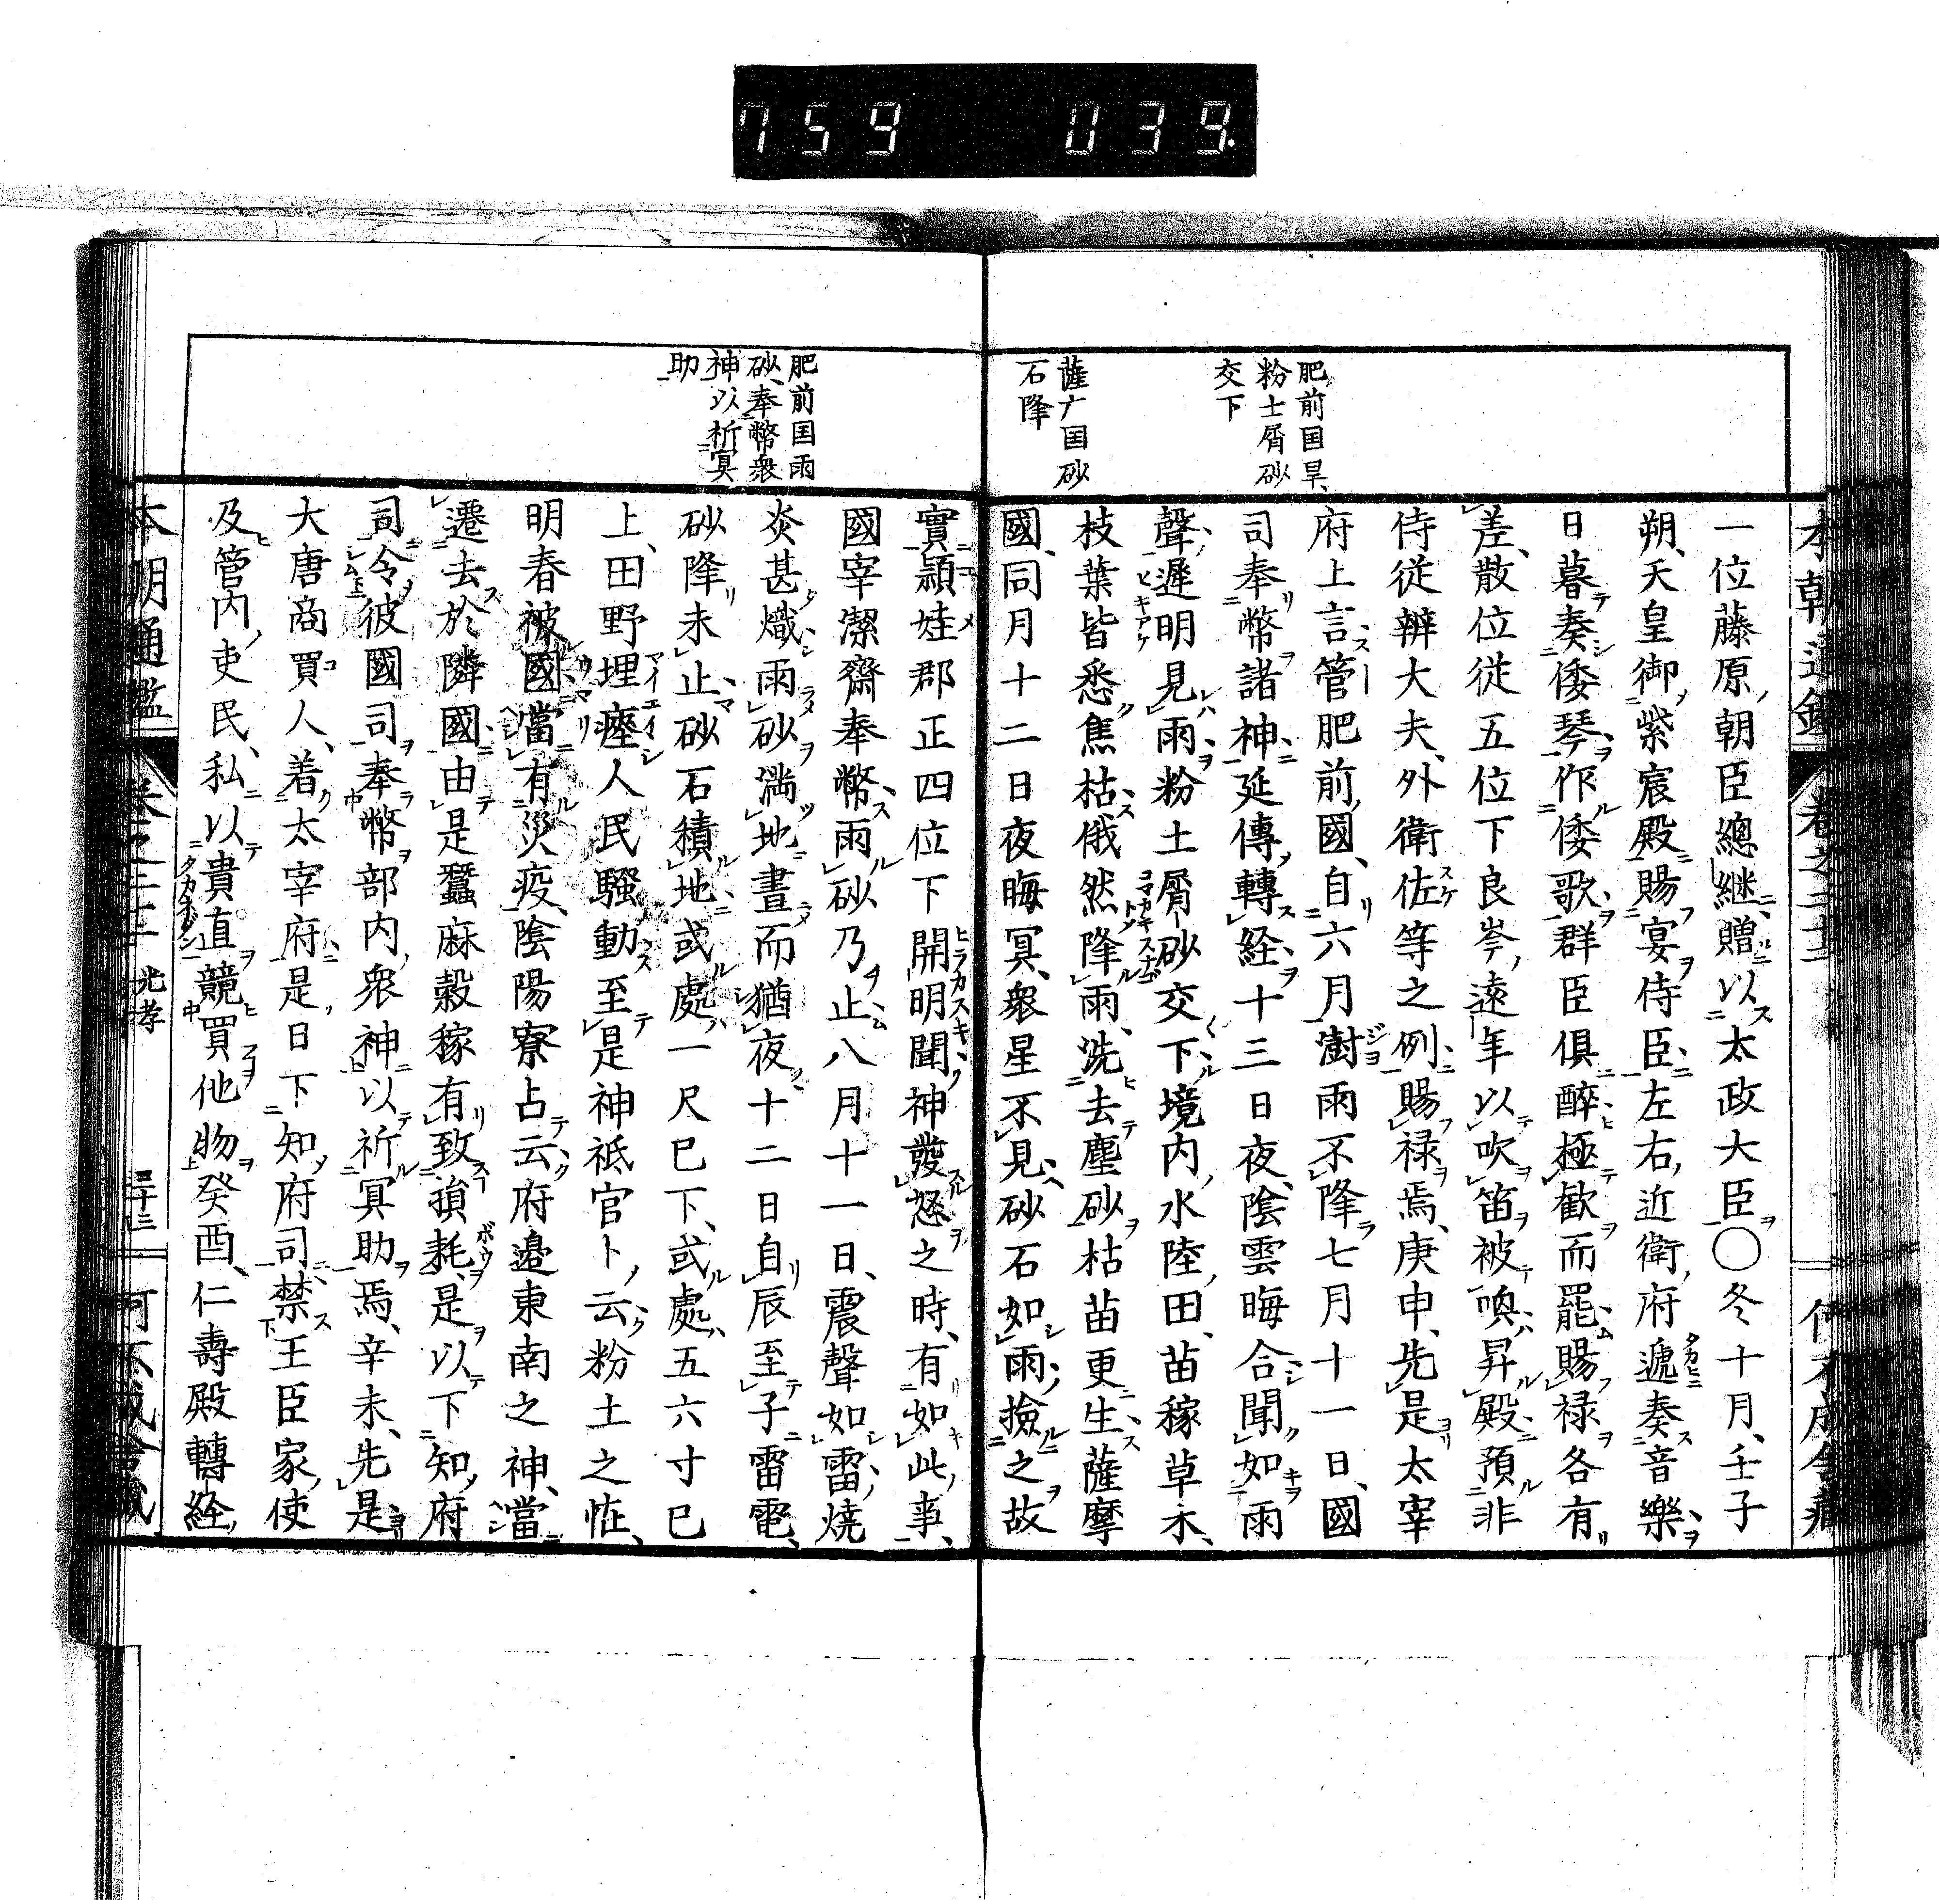 759 039.
肥前国旱、
粉土屑砂
交下
薩广国砂
石降
一位藤原朝臣總継、贈以太政大臣○冬十月、壬子
朔、天皇御紫宸殿賜宴侍臣、左右近衛府遞奏音樂、
日暮奏倭琴、作倭歌、群臣俱醉、極歓而罷、賜禄各有
差、散位從五位下良岑遠年以吹笛被喚、昇殿、預非
侍從辨大夫、外衛佐等之例、賜禄焉、庚申、先是太宰
府上言、管肥前國、自六月澍雨不降、七月十一日、國
司奉幣諸神、延傳轉経、十三日夜、陰雲晦合、聞如雨
聲、遲明見雨粉土屑砂交下、境内水陸田苗稼草木、
枝葉皆悉焦枯、俄然降雨、洗去塵砂枯苗更生、薩摩
國、同月十二日夜晦冥、衆星不見、砂石如雨、撿之故
肥前国雨
砂、奉幣衆
神以祈冥
助
實、頴娃郡正四位下開明聞神發怒之時、有如此事、
國宰潔齋奉幣、雨砂乃止、八月十一日、震聲如雷、燒
炎甚熾、雨砂満地晝而猶夜、十二日自辰至子雷電、
砂降未止、砂石積地或處一尺已下、或處五六寸已
上、田野埋瘞、人民騷動、至是神祇官卜云、粉土之恠、
明春被國、當有災疫、陰陽寮占云、府邊東南之神、當
遷去於隣國、由是蠶麻穀稼有致損耗、是以下知府
司、令彼國司奉幣部内衆神以祈冥助焉、辛未、先是
大唐商買人、着太宰府、是日下知府司、禁王臣家使
及管内吏民、私以貴直競買他物、癸酉、仁壽殿轉経、
本朝通鑑 卷之二十三 光孝